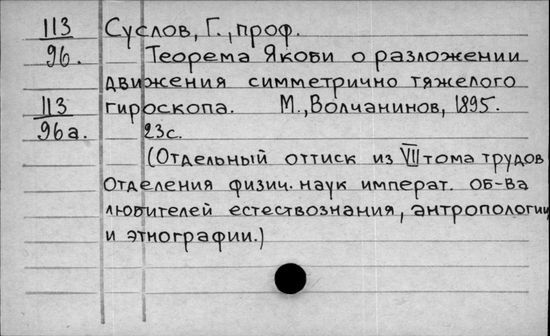 113 Суслов, Г., проф.
96. Теорема Якоби о разложении
движения симметрично тяжелого
113 гироскопа. М., Волчанинов, 1895.
96а. 23с.
(Отдельный оттиск из VII тома трудов
Отделения физич. наук императ. об-ва
любителей естествознания, антропологии
и этнографии.)